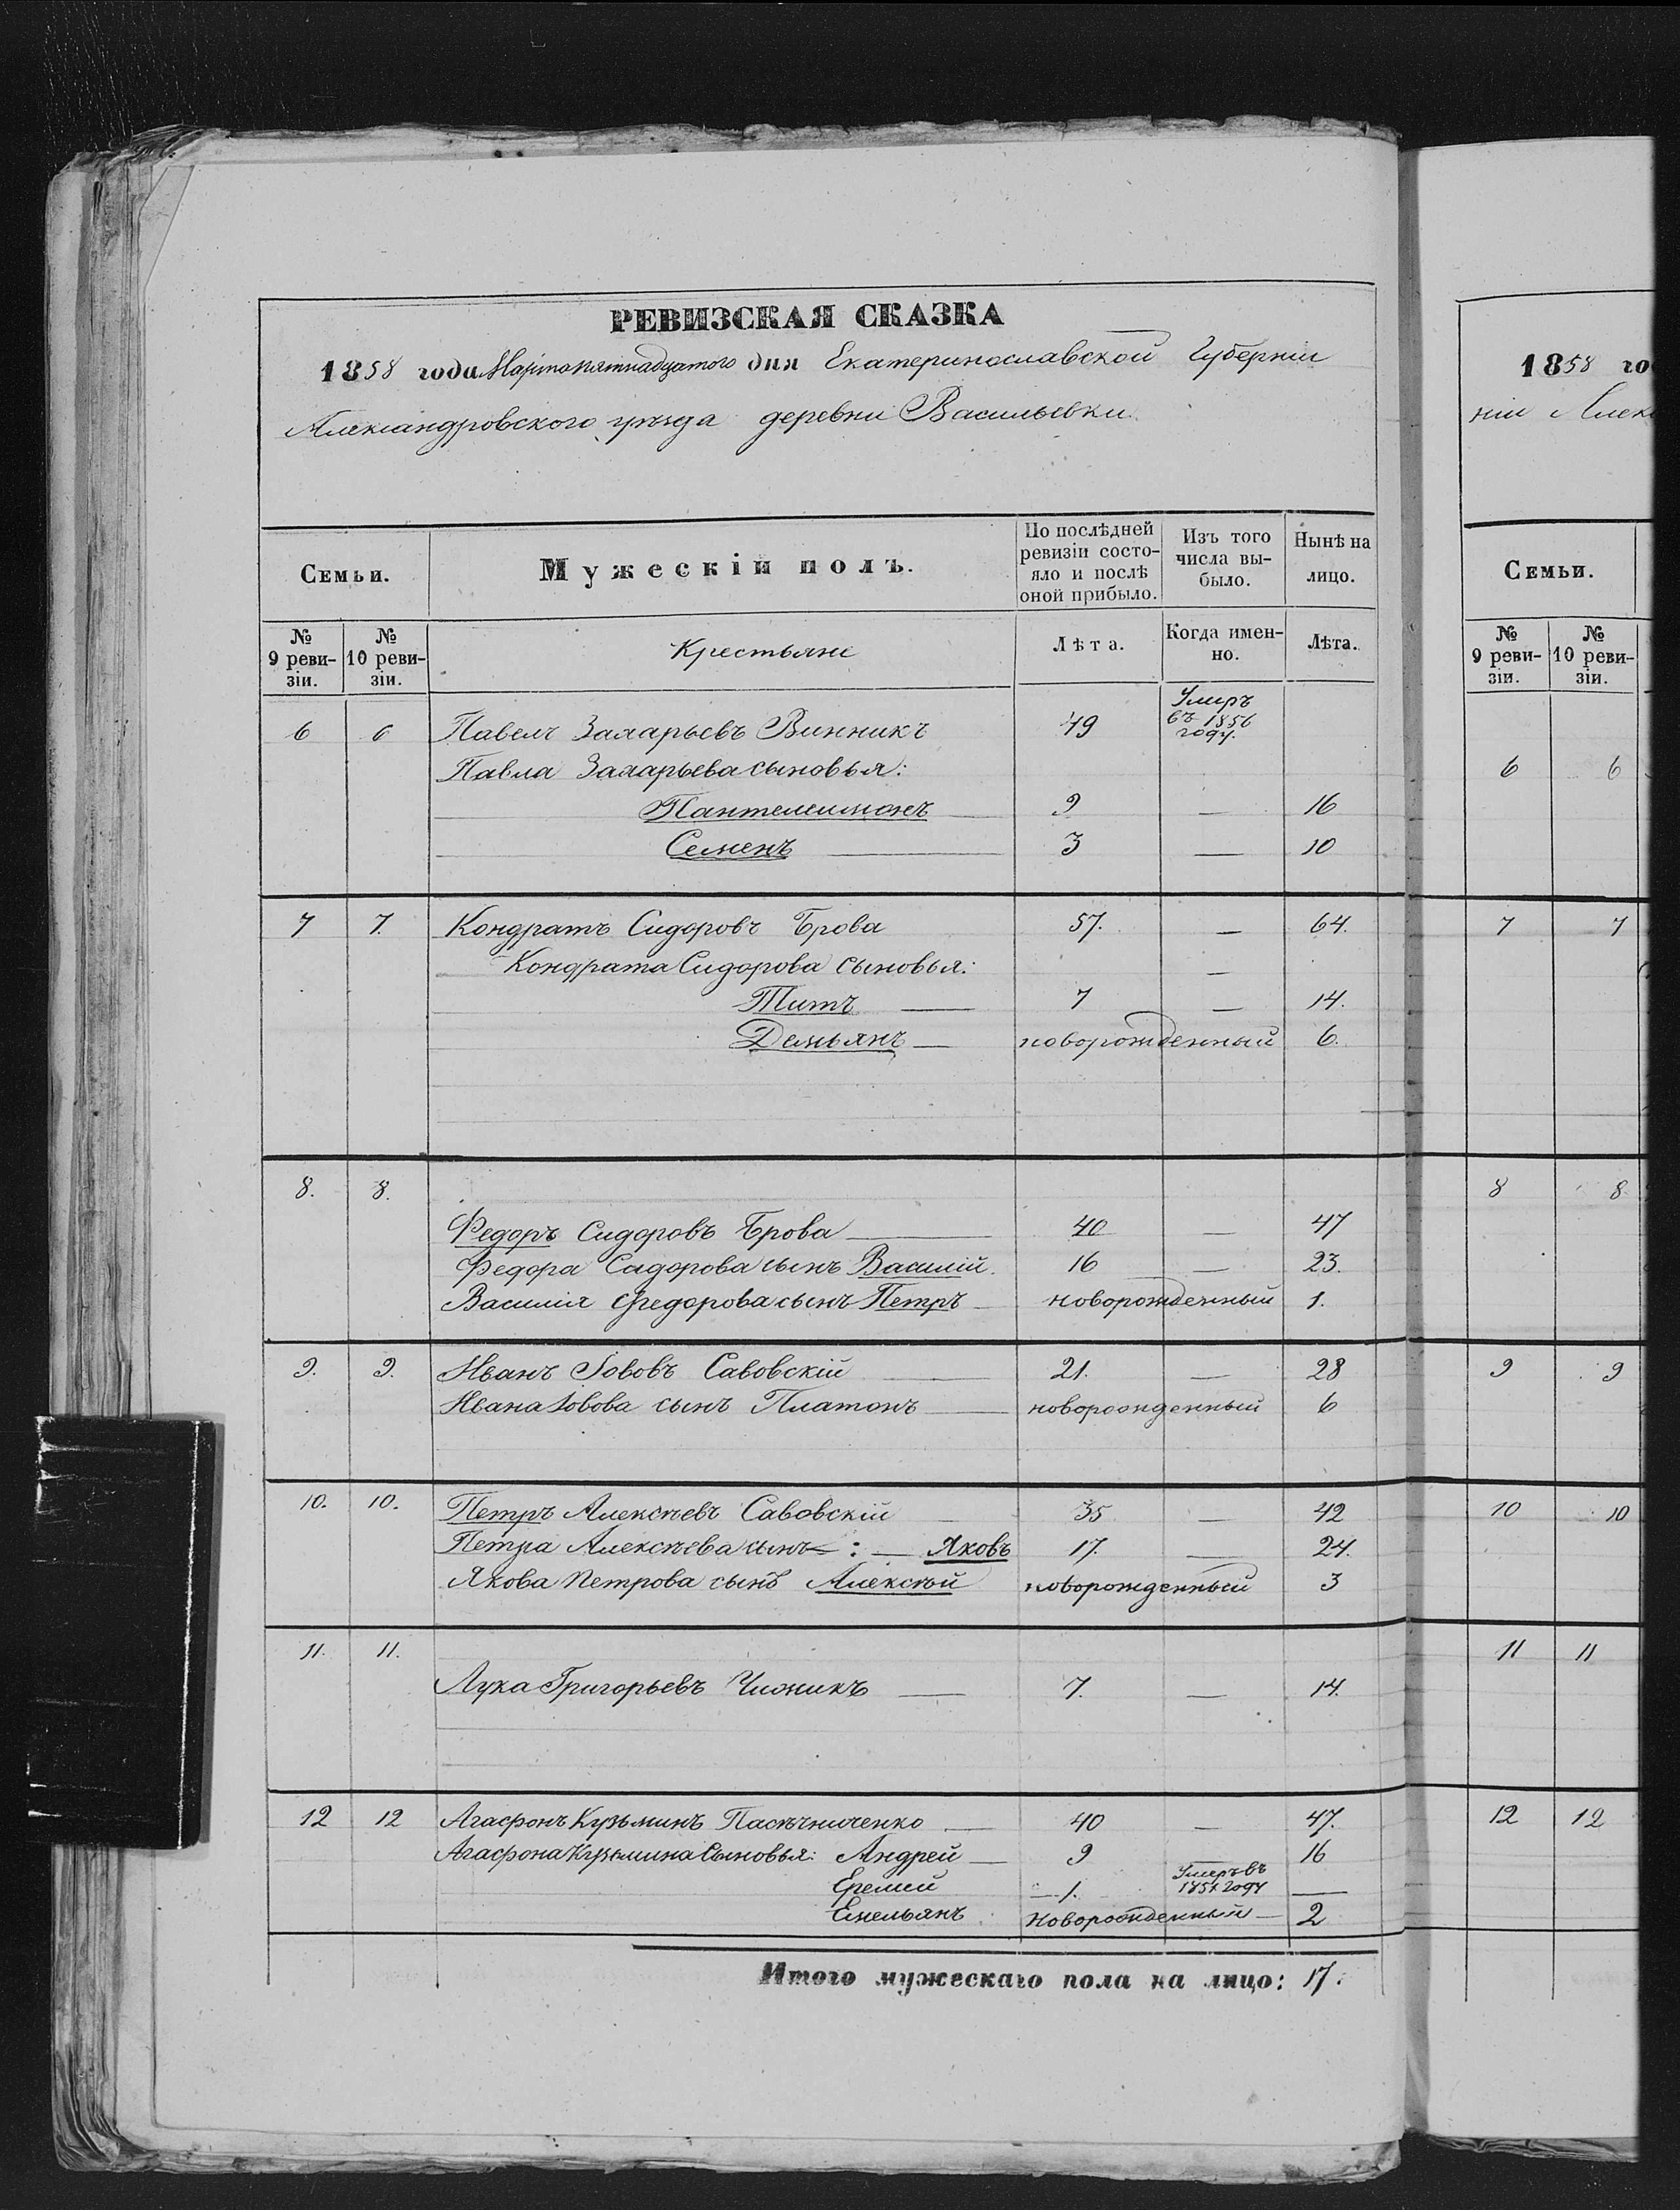 РЕВИЗСКАЯ СКАЗКА
1858 года Марта пятнадцатого дня Екатеринославской Губерніи
Александровского уѣзда деревни Васильевки
Семьи.
Мужескій полъ.
По послѣдней ревизіи состояло и послѣ оной прибыло.
Изъ того числа выбыло.
Нынѣ на лицо.
№ 9 ревизіи.
№ 10 ревизіи.
Крестьяне
Лѣта.
Когда именно.
Лѣта.
6 6 Павелъ Захарьевъ Винникъ 49 Умиръ въ 1856 году.
Павла Захарьева сыновья:
Пантелеимонъ 9 — 16
Семенъ 3 — 10
7 7. Кондратъ Сидоровъ Брова 57. — 64.
Кондрата Сидорова сыновья: —
Титъ 7 — 14.
Демьянъ — новорожденный 6.
8. 8.
Федоръ Сидоровъ Брова 40 — 47
Федора Сидорова сынъ Василій. 16 — 23.
Василія Федорова сынъ Петръ новорожденный 1.
9. 9. Иванъ Іововъ Савовскій 21. — 28
Ивана Іовова сынъ Платонъ новорожденный 6
10. 10. Петръ Алексѣевъ Савовскій 35 — 42
Петра Алексѣева сынъ: — Яковъ 17. — 24.
Якова Петрова сынъ Алексѣй новорожденный 3
11. 11.
Лука Григорьевъ Чижикъ — 7. — 14.
12 12 Агафонъ Кузьминъ Пасѣчниченко 40 — 47.
Агафона Кузьмина Сыновья: Андрей — 9 — 16
Еремей 1. Умеръ въ году —
Емельянъ новорожденный — 2
Итого мужескаго пола на лицо: 17.
1858 го
ніи Алек
Семьи.
№ 9 ревизіи.
№ 10 ревизіи.
6 6
7 7
8 8
9 9
10 10
11 11
12 12